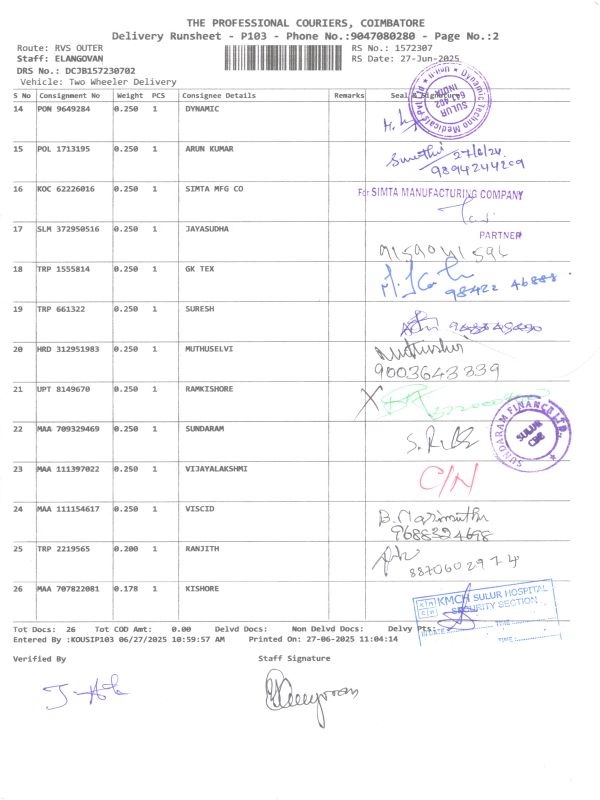 THE PROFESSIONAL COURIERS, COIMBATORE
Delivery Runsheet - P103 - Phone No.:9047080280 - Page No.:2
Route: RVS OUTER RS No.: 1572307
Staff: ELANGOVAN RS Date: 27-Jun-2025
DRS No.: DCJB157230702
Vehicle: Two Wheeler Delivery
S No Consignment No Weight PCS Consignee Details Remarks Seal & Signature
14 PON 9649284 0.250 1 DYNAMIC
Dynamic Techno Medicals
SULUR 641 402 INDIA
15 POL 1713195 0.250 1 ARUN KUMAR
27/6/24
9894244209
16 KOC 62226016 0.250 1 SIMTA MFG CO
For SIMTA MANUFACTURING COMPANY
PARTNER
17 SLM 372950516 0.250 1 JAYASUDHA
18 TRP 1555814 0.250 1 GK TEX
98422 46888
19 TRP 661322 0.250 1 SURESH
20 HRD 312951983 0.250 1 MUTHUSELVI
9003643839
21 UPT 8149670 0.250 1 RAMKISHORE
22 MAA 709329469 0.250 1 SUNDARAM
SUNDARAM FINANCE LTD.
SULUR CBE
23 MAA 111397022 0.250 1 VIJAYALAKSHMI C/N
24 MAA 111154617 0.250 1 VISCID
9688324698
25 TRP 2219565 0.200 1 RANJITH
8870602974
26 MAA 707822081 0.178 1 KISHORE
KMCH SULUR HOSPITAL
SECURITY SECTION
IN DATE TIME
TIME
Tot Docs: 26 Tot COD Amt: 0.00 Delvd Docs: Non Delvd Docs: Delvy Pts:
Entered By :KOUSIP103 06/27/2025 10:59:57 AM Printed On: 27-06-2025 11:04:14
Verified By Staff Signature